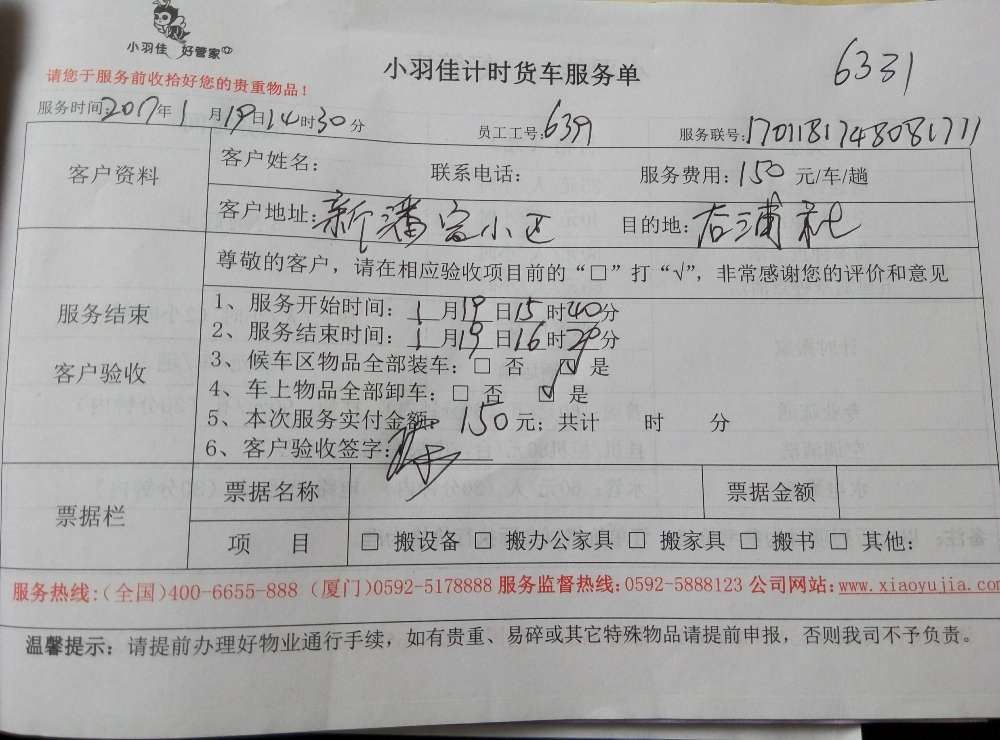 小羽佳 好管家
小羽佳计时货车服务单
6331
请您于服务前收拾好您的贵重物品！
服务时间:2017年1月19日14时30分
员工工号:639
服务联号:170118174808177
客户资料
客户姓名：
联系电话：
服务费用：150元/车/趟
客户地址：新潘宫小区
目的地：古浦社
服务结束
客户验收
尊敬的客户，请在相应验收项目前的“□”打“√”，非常感谢您的评价和意见
1、服务开始时间：1月19日15时40分
2、服务结束时间：1月19日16时20分
3、候车区物品全部装车：□ 否 ☑ 是
4、车上物品全部卸车：□ 否 ☑ 是
5、本次服务实付金额：150元；共计 时 分
6、客户验收签字：
票据栏
票据名称
票据金额
项 目
□ 搬设备 □ 搬办公家具 □ 搬家具 □ 搬书 □ 其他：
服务热线:(全国)400-6655-888 (厦门)0592-5178888 服务监督热线:0592-5888123 公司网站:www.xiaoyujia.com
温馨提示：请提前办理好物业通行手续，如有贵重、易碎或其它特殊物品请提前申报，否则我司不予负责。